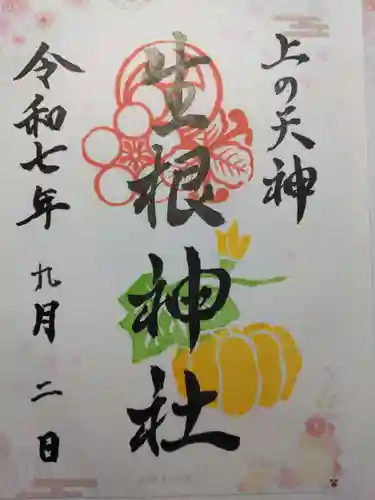 上の天神
生根神社
令和七年
九月二日